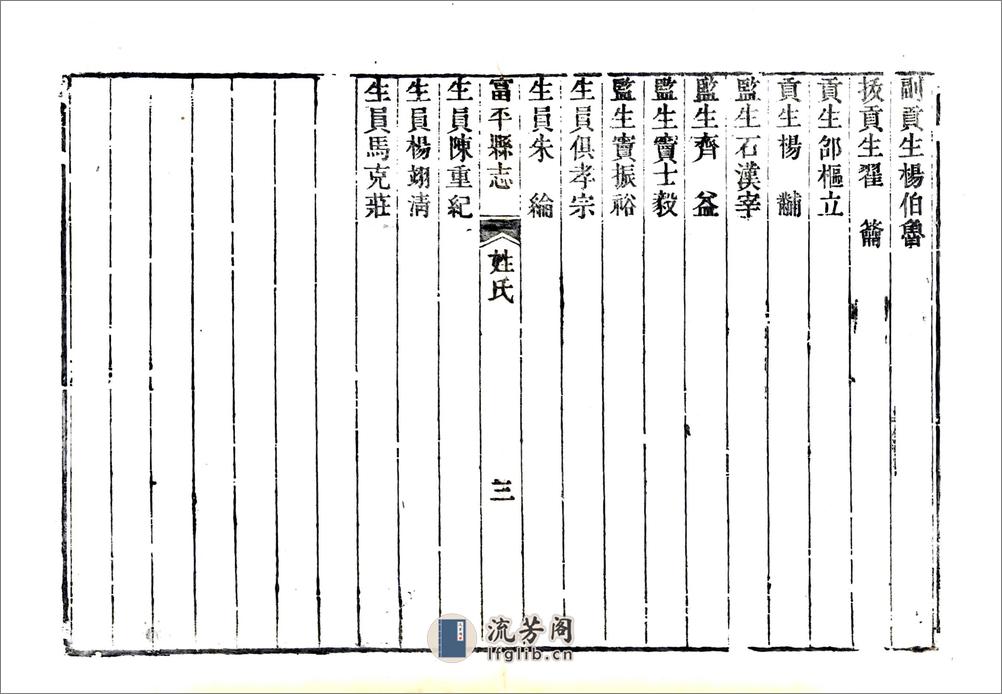 副貢生楊伯魯
拔貢生翟 籥
貢生郃樞立
貢生楊 黼
監生石漢宰
監生齊 益
監生竇士毅
監生竇振裕
生員俱孝宗
生員朱 綸
富平縣志 姓氏 三
生員陳重紀
生員楊翊清
生員馬克莊
流芳阁
lfglib.cn